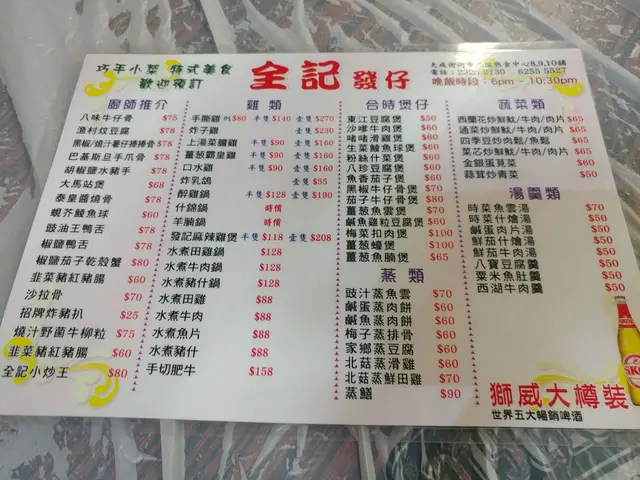 巧手小菜 特式美食
歡迎預訂
全記 發仔
電話：2320 2130 6255 5527
晚飯時段：6pm - 10:30pm
廚師推介
八味牛仔骨 $75
漁村炆豆腐 $78
黑椒/燒汁薯仔捧捧骨 $78
巴基斯旦手爪骨 $78
胡椒鹽水豬手 $78
大馬站煲 $68
泰皇醬燒骨 $78
蜆芥鯪魚球 $60
豉油王鴨舌 $78
椒鹽鴨舌 $78
椒鹽茄子乾殼蟹 $80
韭菜豬紅豬腸 $60
沙拉骨 $70
招牌炸豬扒 $25
燒汁野菌牛柳粒 $75
韭菜豬紅豬腸 $60
全記小炒王 $80
雞類
手撕雞 例$80 半隻 $140 壹隻 $270
炸子雞 壹隻 $230
上湯菜膽雞 半隻 $90 壹隻 $160
薑葱霸皇雞 半隻 $90 壹隻 $160
口水雞 半隻 $90 壹隻 $160
炸乳鴿 壹隻 $55
醉雞鍋 半隻 $128 壹隻 $190
什錦鍋 時價
羊腩鍋 時價
發記麻辣雞煲 半隻 $118 壹隻 $208
水煮田雞鍋 $128
水煮牛肉鍋 $128
水煮雜錦鍋 $128
水煮田雞 $88
水煮牛肉 $88
水煮魚片 $88
水煮豬什 $88
手切肥牛 $158
合時煲仔
東江豆腐煲 $50
沙嗲牛肉煲 $60
啫啫滑雞煲 $60
生菜鯪魚球煲 $60
粉絲什菜煲 $60
八珍豆腐煲 $60
魚香茄子煲 $60
黑椒牛仔骨煲 $70
茄子牛仔骨煲 $80
薑葱魚雲煲 $70
鹹魚雞粒豆腐煲 $60
梅菜扣肉煲 $100
薑葱蠔煲 $100
薑葱魚腩煲 $65
蒸類
豉汁蒸魚雲 $70
鹹蛋蒸肉餅 $60
鹹魚蒸肉餅 $60
梅子蒸排骨 $60
家鄉蒸豆腐 $60
北菇蒸滑雞 $60
北菇蒸鮮田雞 $70
蒸鱔 $90
蔬菜類
西蘭花炒鮮魷/牛肉/肉片 $65
通菜炒鮮魷/牛肉/肉片 $65
四季豆炒肉鬆/魚鬆 $65
菜芯炒鮮魷/牛肉/肉片 $65
金銀蛋莧菜 $60
蒜茸炒青菜 $50
湯羹類
時菜魚雲湯 $70
時菜什燴湯 $50
鹹蛋肉片湯 $50
鮮茄什燴湯 $50
鮮茄牛肉湯 $50
八寶豆腐羹 $50
粟米魚肚羹 $50
西湖牛肉羹 $50
獅威大樽裝
世界五大暢銷啤酒